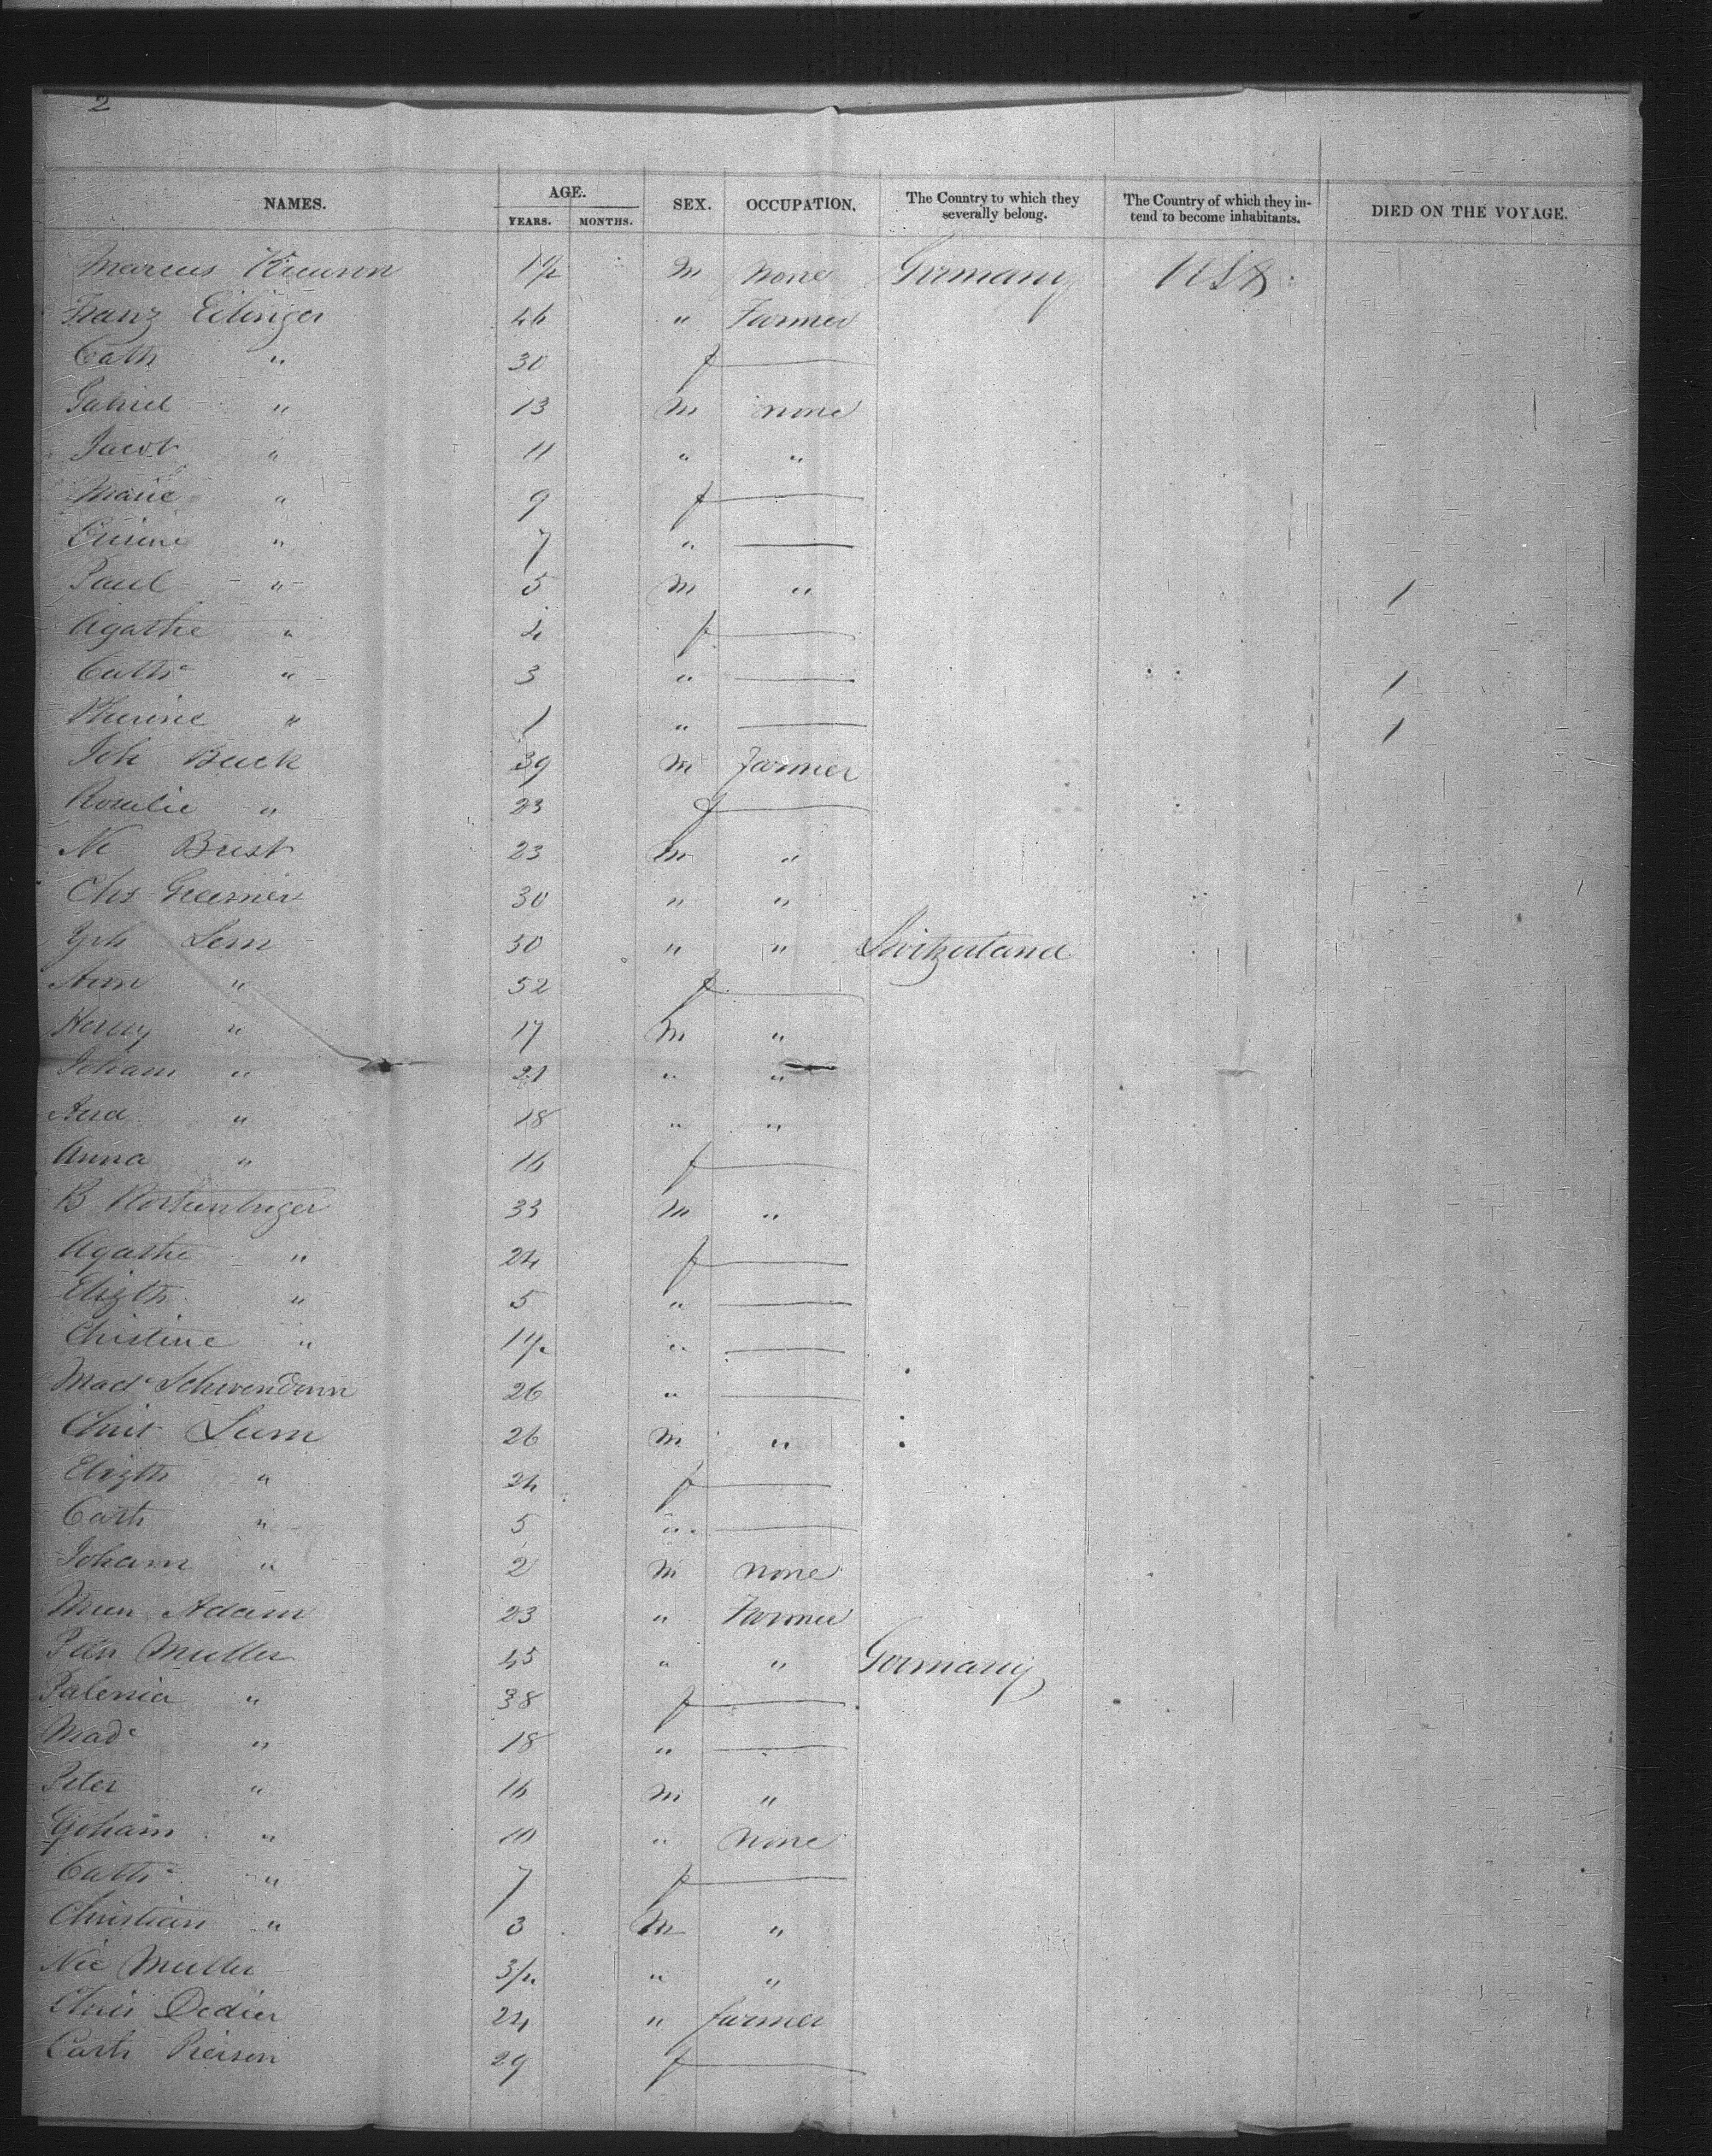 2
NAMES. AGE. YEARS. MONTHS. SEX. OCCUPATION. The Country to which they severally belong. The Country of which they intend to become inhabitants. DIED ON THE VOYAGE.
Marcus 1½ M None Germany USA
Franz Edinger 46 " Farmer
Cath " 30 f —
Gabriel " 13 M none
Jacob " 11 " "
Marie " 9 f —
" 7 " —
Paul " 5 M " /
Agathe " 4 f —
Cath " 3 " — /
" 1 " — /
Joh Buck 39 M Farmer
Rosalie " 23 f —
Brust 23 M "
Chs 30 " "
Lem " " Switzerland
" 52 f —
Henry " 17 M "
Joham " 21 " "
" 18 " "
Anna " 16 f —
B 33 M "
Agathe " 24 f —
Elizth " 5 " —
Christine " 1½ " —
Mad 26 " —
Christ 26 M "
Elizth " 24 f —
Cath " 5 " —
Joham " 2 M none
Adam 23 " Farmer
Muller 45 " " Germany
" 38 f —
Mad " 18 " —
Peter " 16 M "
Joham " 10 " None
Cath " 7 f —
Christian " 3 M "
Nic Muller " "
Chris Dedier 24 " farmer
Cath Pierson 29 f —